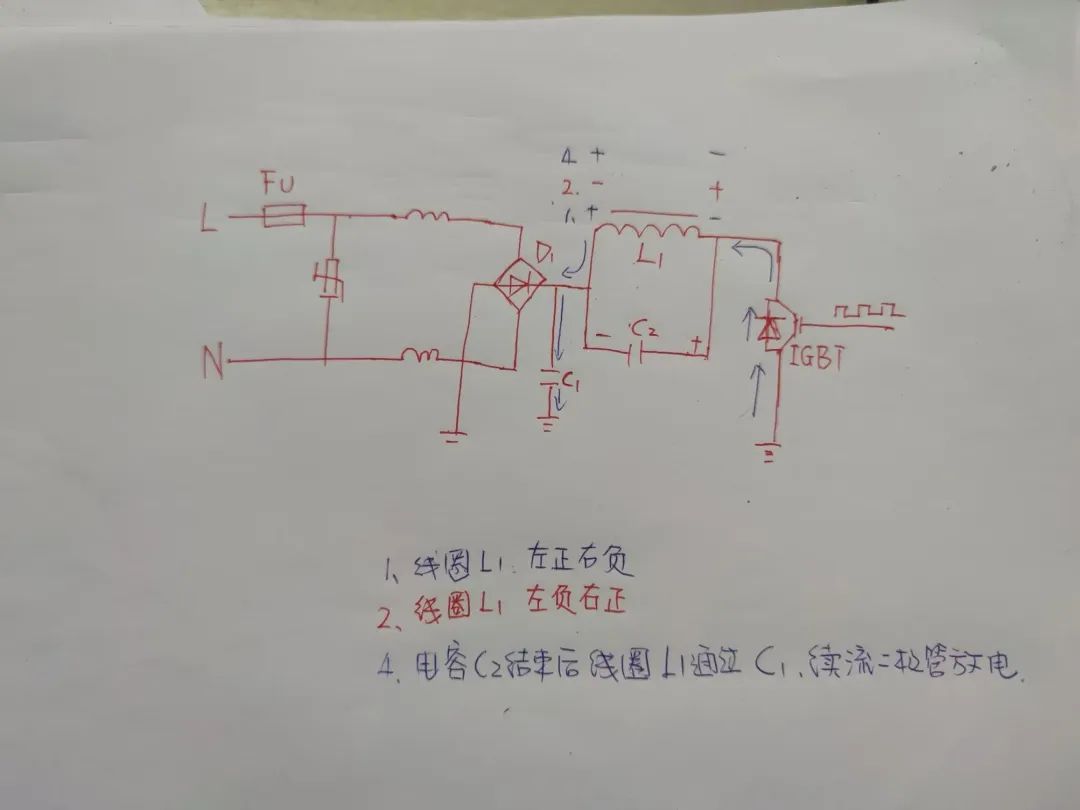 4 + -
2. - +
1. + -
FU
L
D1
L1
- C2 +
IGBT
N
C1
1、线圈L1 左正右负
2、线圈L1 左负右正
4、电容C2结束后线圈L1通过C1、续流二极管放电.